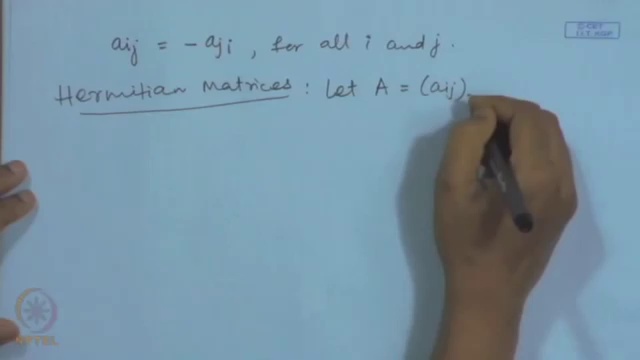 © CET
I.I.T. KGP
aij = - aji , for all i and j.
Hermitian Matrices : Let A = (aij)
NPTEL